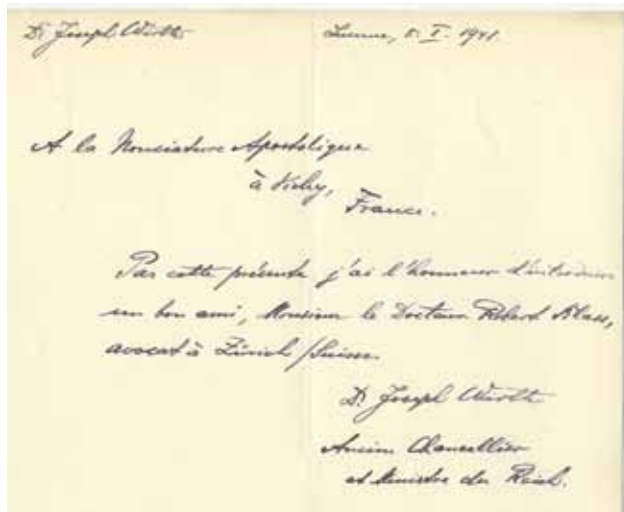 Dr Joseph Wirth
Luzern, 5. I. 1941.
A la Nonciature Apostolique
à Vichy,
France.
Par cette présente j'ai l'honneur d'introduire
un bon ami, Monsieur le Docteur Robert Blass,
avocat à Zürich/Suisse.
Dr Joseph Wirth
Ancien Chancellier
et Ministre du Reich.